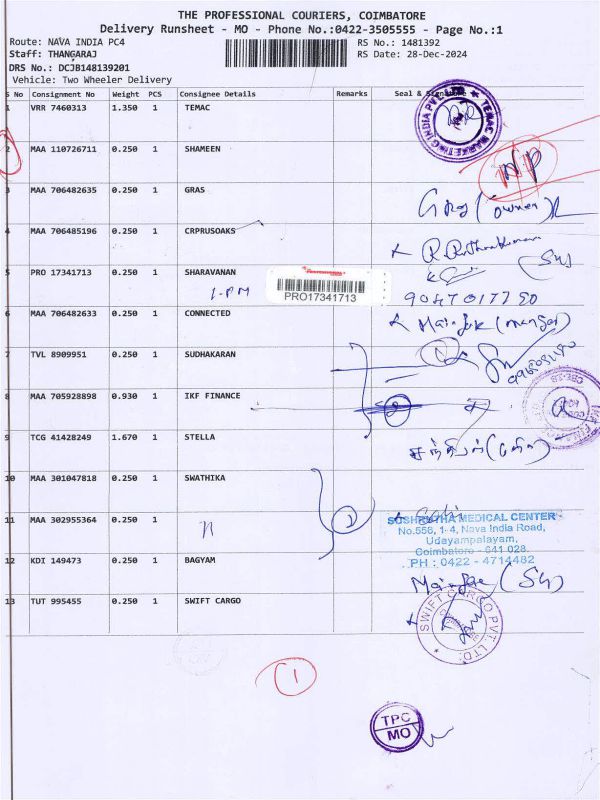 THE PROFESSIONAL COURIERS, COIMBATORE
Delivery Runsheet - MO - Phone No.:0422-3505555 - Page No.:1
Route: NAVA INDIA PC4 RS No.: 1481392
Staff: THANGARAJ RS Date: 28-Dec-2024
DRS No.: DCJB148139201
Vehicle: Two Wheeler Delivery
S No Consignment No Weight PCS Consignee Details Remarks Seal & Signature
1 VRR 7460313 1.350 1 TEMAC
TEMAC MARKETING INDIA PVT LTD
2 MAA 110726711 0.250 1 SHAMEEN
NP
3 MAA 706482635 0.250 1 GRAS
(owner)
4 MAA 706485196 0.250 1 CRPRUSOAKS
5 PRO 17341713 0.250 1 SHARAVANAN
1-PM
PRO17341713
9047017790
6 MAA 706482633 0.250 1 CONNECTED
7 TVL 8909951 0.250 1 SUDHAKARAN
8 MAA 705928898 0.930 1 IKF FINANCE
9 TCG 41428249 1.670 1 STELLA
10 MAA 301047818 0.250 1 SWATHIKA
11 MAA 302955364 0.250 1
n
SUSHRUTHA MEDICAL CENTER
No.558, 1-4, Nava India Road,
Udayampalayam,
Coimbatore - 641 028.
PH : 0422 - 4714482
12 KDI 149473 0.250 1 BAGYAM
13 TUT 995455 0.250 1 SWIFT CARGO
SWIFT CARGO PVT. LTD.
1
TPC
MO